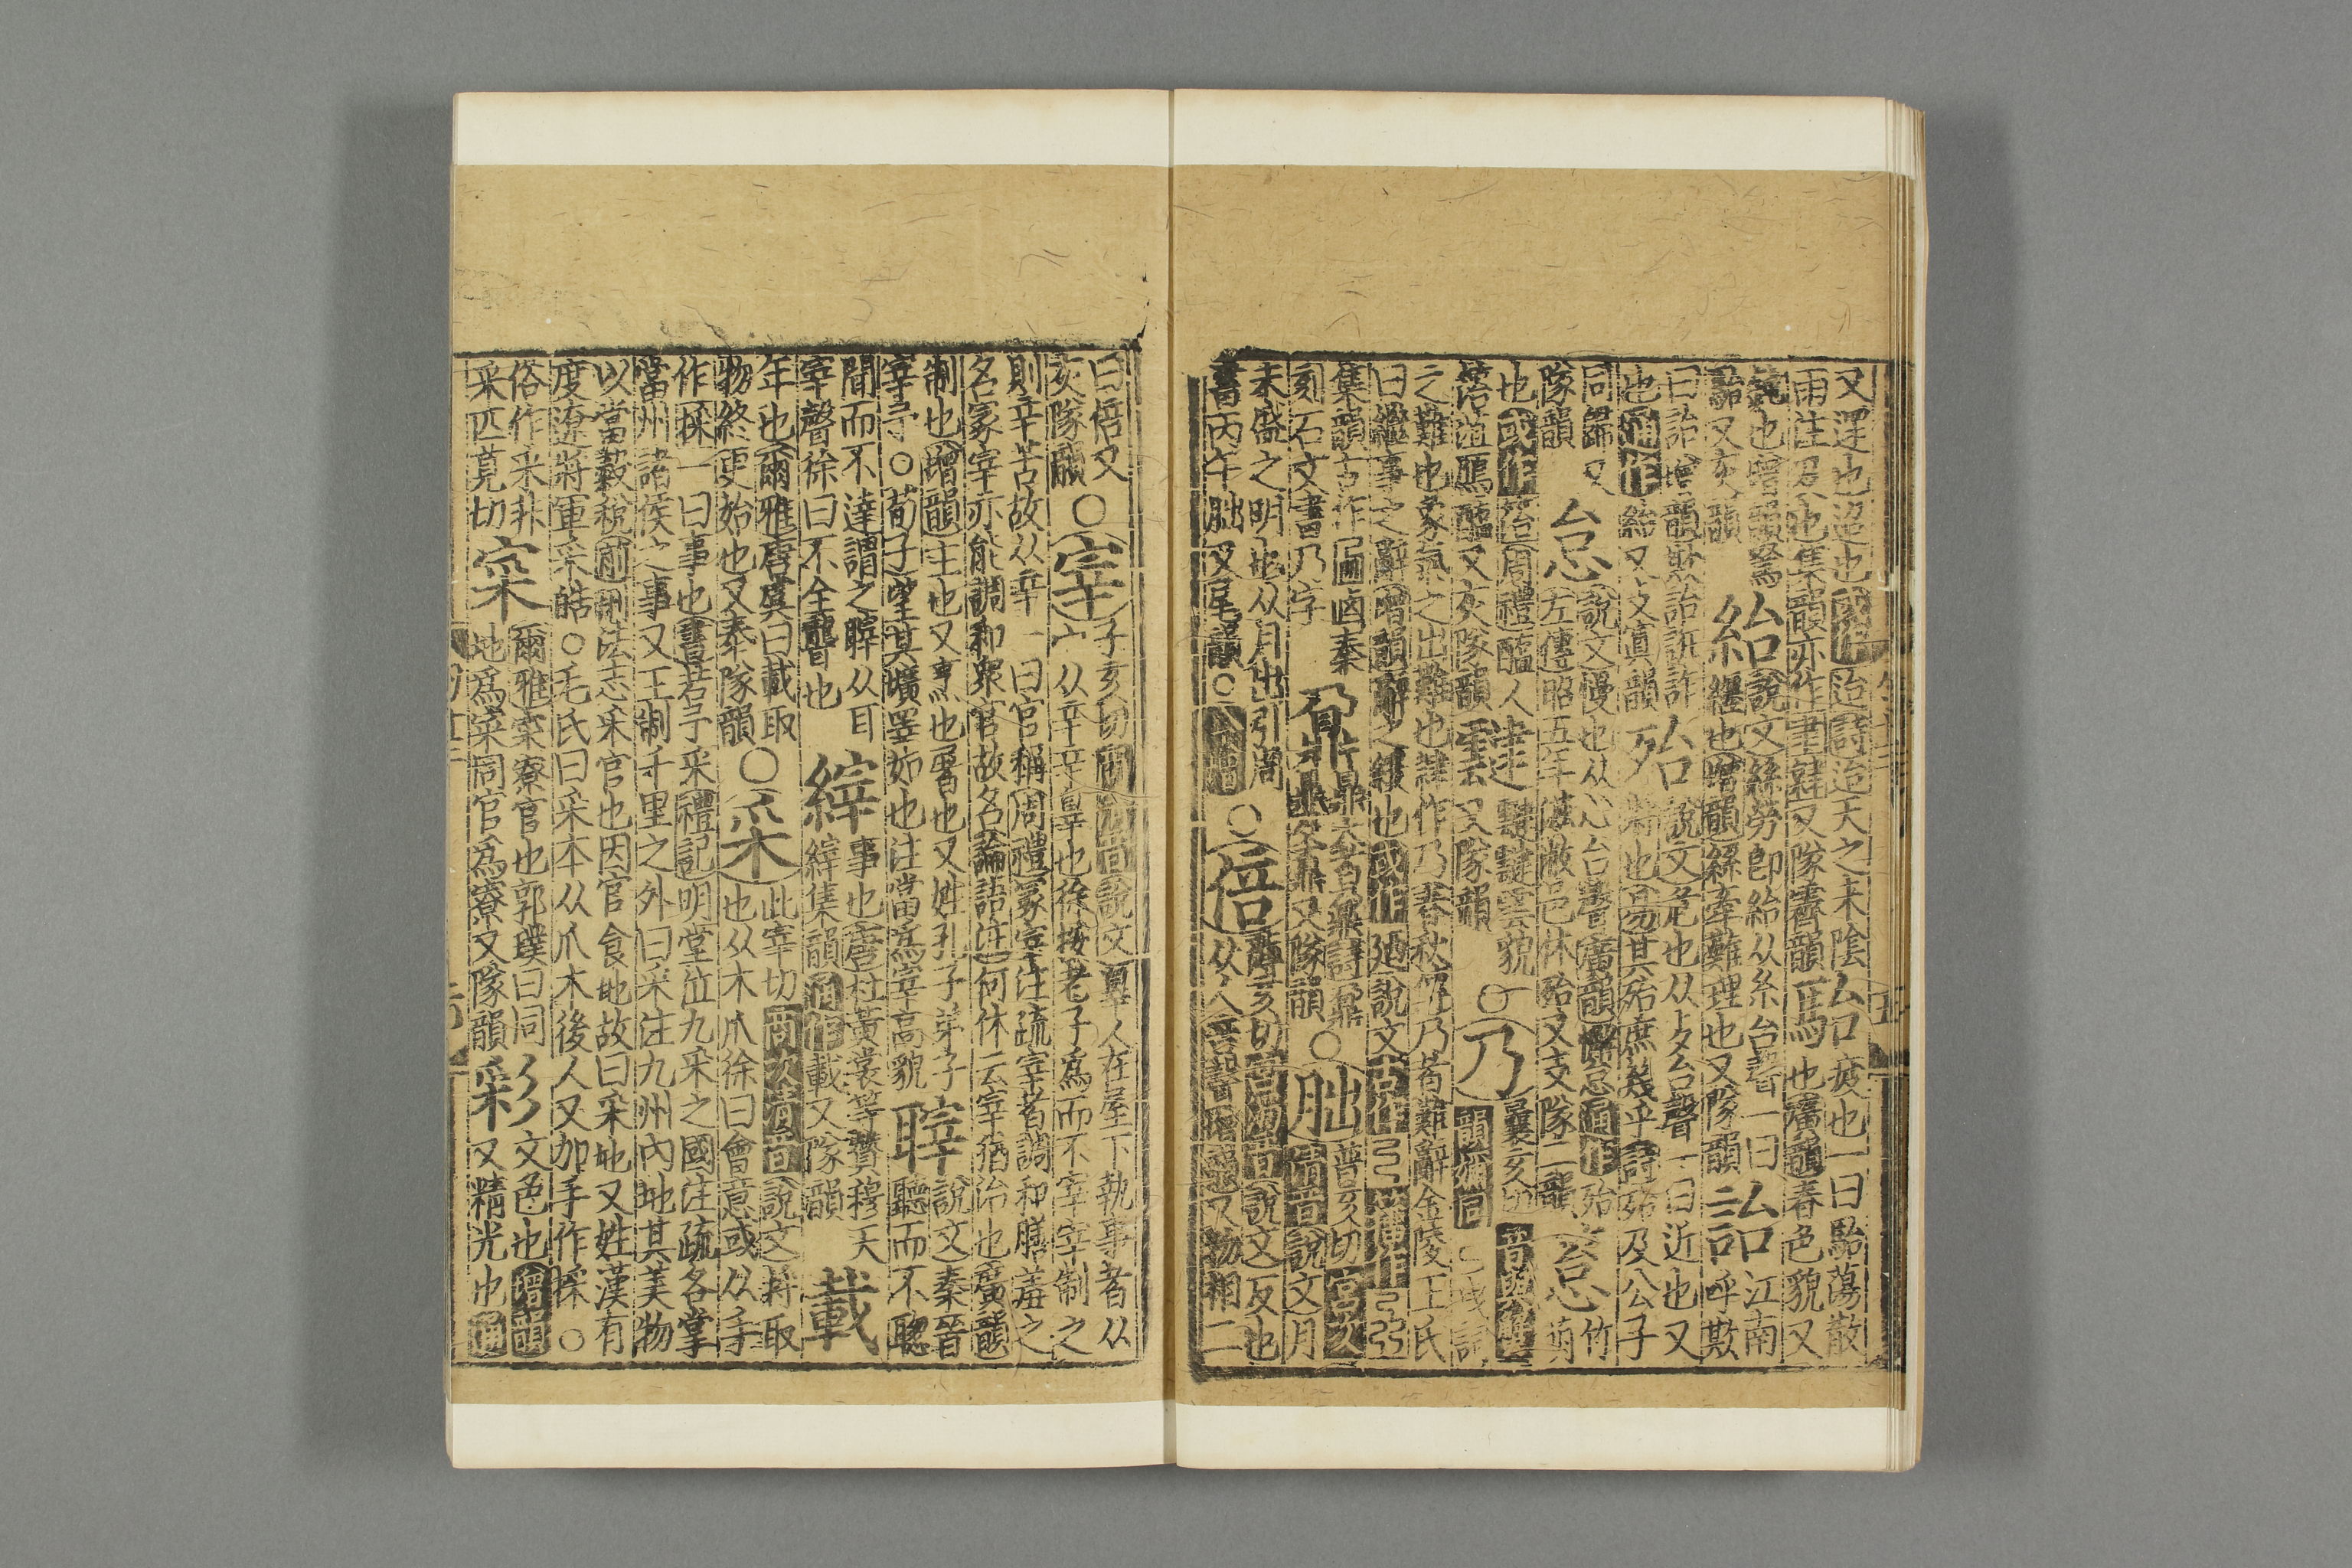 又遝也迨也或作迨詩迨天之未陰
雨注及也集韻亦作隶又隊霽韻
駘
疲也一曰駘蕩散
也廣韻春色貌又
也增韻駑
駘又灰韻
紿
說文絲勞即紿从糸台聲一曰
纏也增韻絲牽難理也又隊韻
詒
江南
呼欺
曰詒增韻欺詒誑詐
也通作紿又支寘韻
殆
說文危也从歹台聲一曰近也又
將也易其殆庶幾乎詩殆及公子
同歸又
隊韻
怠
說文慢也从心台聲廣韻懈怠通作殆
左傳昭五年滋敝邑休殆又支隊二韻
箈
竹
萌
也或作箈周禮醢人
箈菹鴈醢又灰隊韻
靆
靉靆雲貌
又隊韻
○乃
曩亥切
之難也象氣之出難也隸作乃春秋傳乃者難辭金陵王氏
曰繼事之辭增韻辭之緩也或作廼說文古作弓籀作
集韻古作卤秦
刻石文書乃字
鼐
鼎大者曰鼐詩鼐
鼎及鼒又隊韻
○朏
普亥切宮次
清音說文月
未盛之明也从月出引周
書丙午朏又尾韻○
○倍
薄亥切宮濁音說文反也
从人咅聲增韻又物相二
曰倍又
灰隊韻
○宰
子亥切商清音說文辠人在屋下執事者从
宀从辛辛辠也徐按老子爲而不宰宰制之
則辛苦故从辛一曰官稱周禮冢宰注疏宰者調和膳羞之
名冢宰亦能調和衆官故名論語注何休云宰猶治也廣韻
制也增韻主也又烹也屠也又姓孔子弟子
宰予○荀子望其壙睪如也注當爲宰高貌
䏁
說文秦晉
聽而不聦
聞而不達謂之䏁从耳
宰聲徐曰不全聾也
縡
事也唐杜黃裳箏贊穆天
縡集韻通作載又隊韻
載
年也爾雅唐虞曰載取
物終更始也又奉隊韻
○采
此宰切商次清音說文捋取
也从木爪徐曰會意或从手
作採一曰事也書若予采禮記明堂位九采之國注疏各掌
當州諸侯之事又王制千里之外曰采注九州內地其美物
以當穀稅前刑法志采官也因官食地故曰采地又姓漢有
度遼將軍采皓○毛氏曰采本从爪木後人又加手作採○
俗作采非
采匹莧切
寀
爾雅寀寮官也郭璞曰同
地爲寀同官爲寮又隊韻
彩
文色也增韻
又精光也通